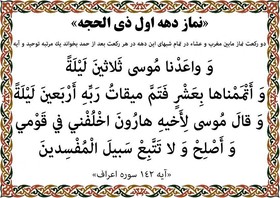 «نماز دهه اول ذی الحجه»
دو رکعت نماز مابین مغرب و عشاء در تمام شبهای این دهه در هر رکعت بعد از حمد بخواند یك مرتبه توحید و آیه
وَ واعَدْنا مُوسى ثَلاثینَ لَیْلَةً
وَ أَتْمَمْناها بِعَشْرٍ فَتَمَّ میقاتُ رَبِّهِ أَرْبَعینَ لَیْلَةً
وَ قالَ مُوسى لِأَخیهِ هارُونَ اخْلُفْنی فی قَوْمی
وَ أَصْلِحْ وَ لا تَتَّبِعْ سَبیلَ الْمُفْسِدین
«آیه ۱۴۲ سوره اعراف»